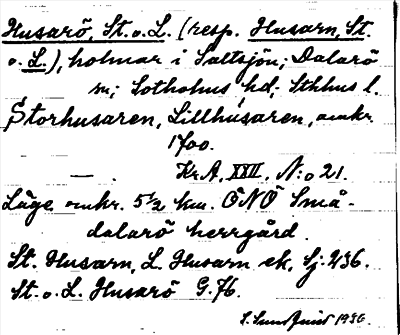 Husarö, St. o. L. (resp. Husarn, St.
o. L.), holmar i Saltsjön; Dalarö
sn; Sotholms hd; Sthlms l.
Storhusaren, Lillhusaren, omkr.
1700.
Kr.A. XXII. N:o 21.
Läge omkr. 5 1/2 km. ÖNÖ Små-
dalarö herrgård.
St. Husarn, L. Husarn ek. Sj. 236.
St. o. L. Husarö G. 76.
1936